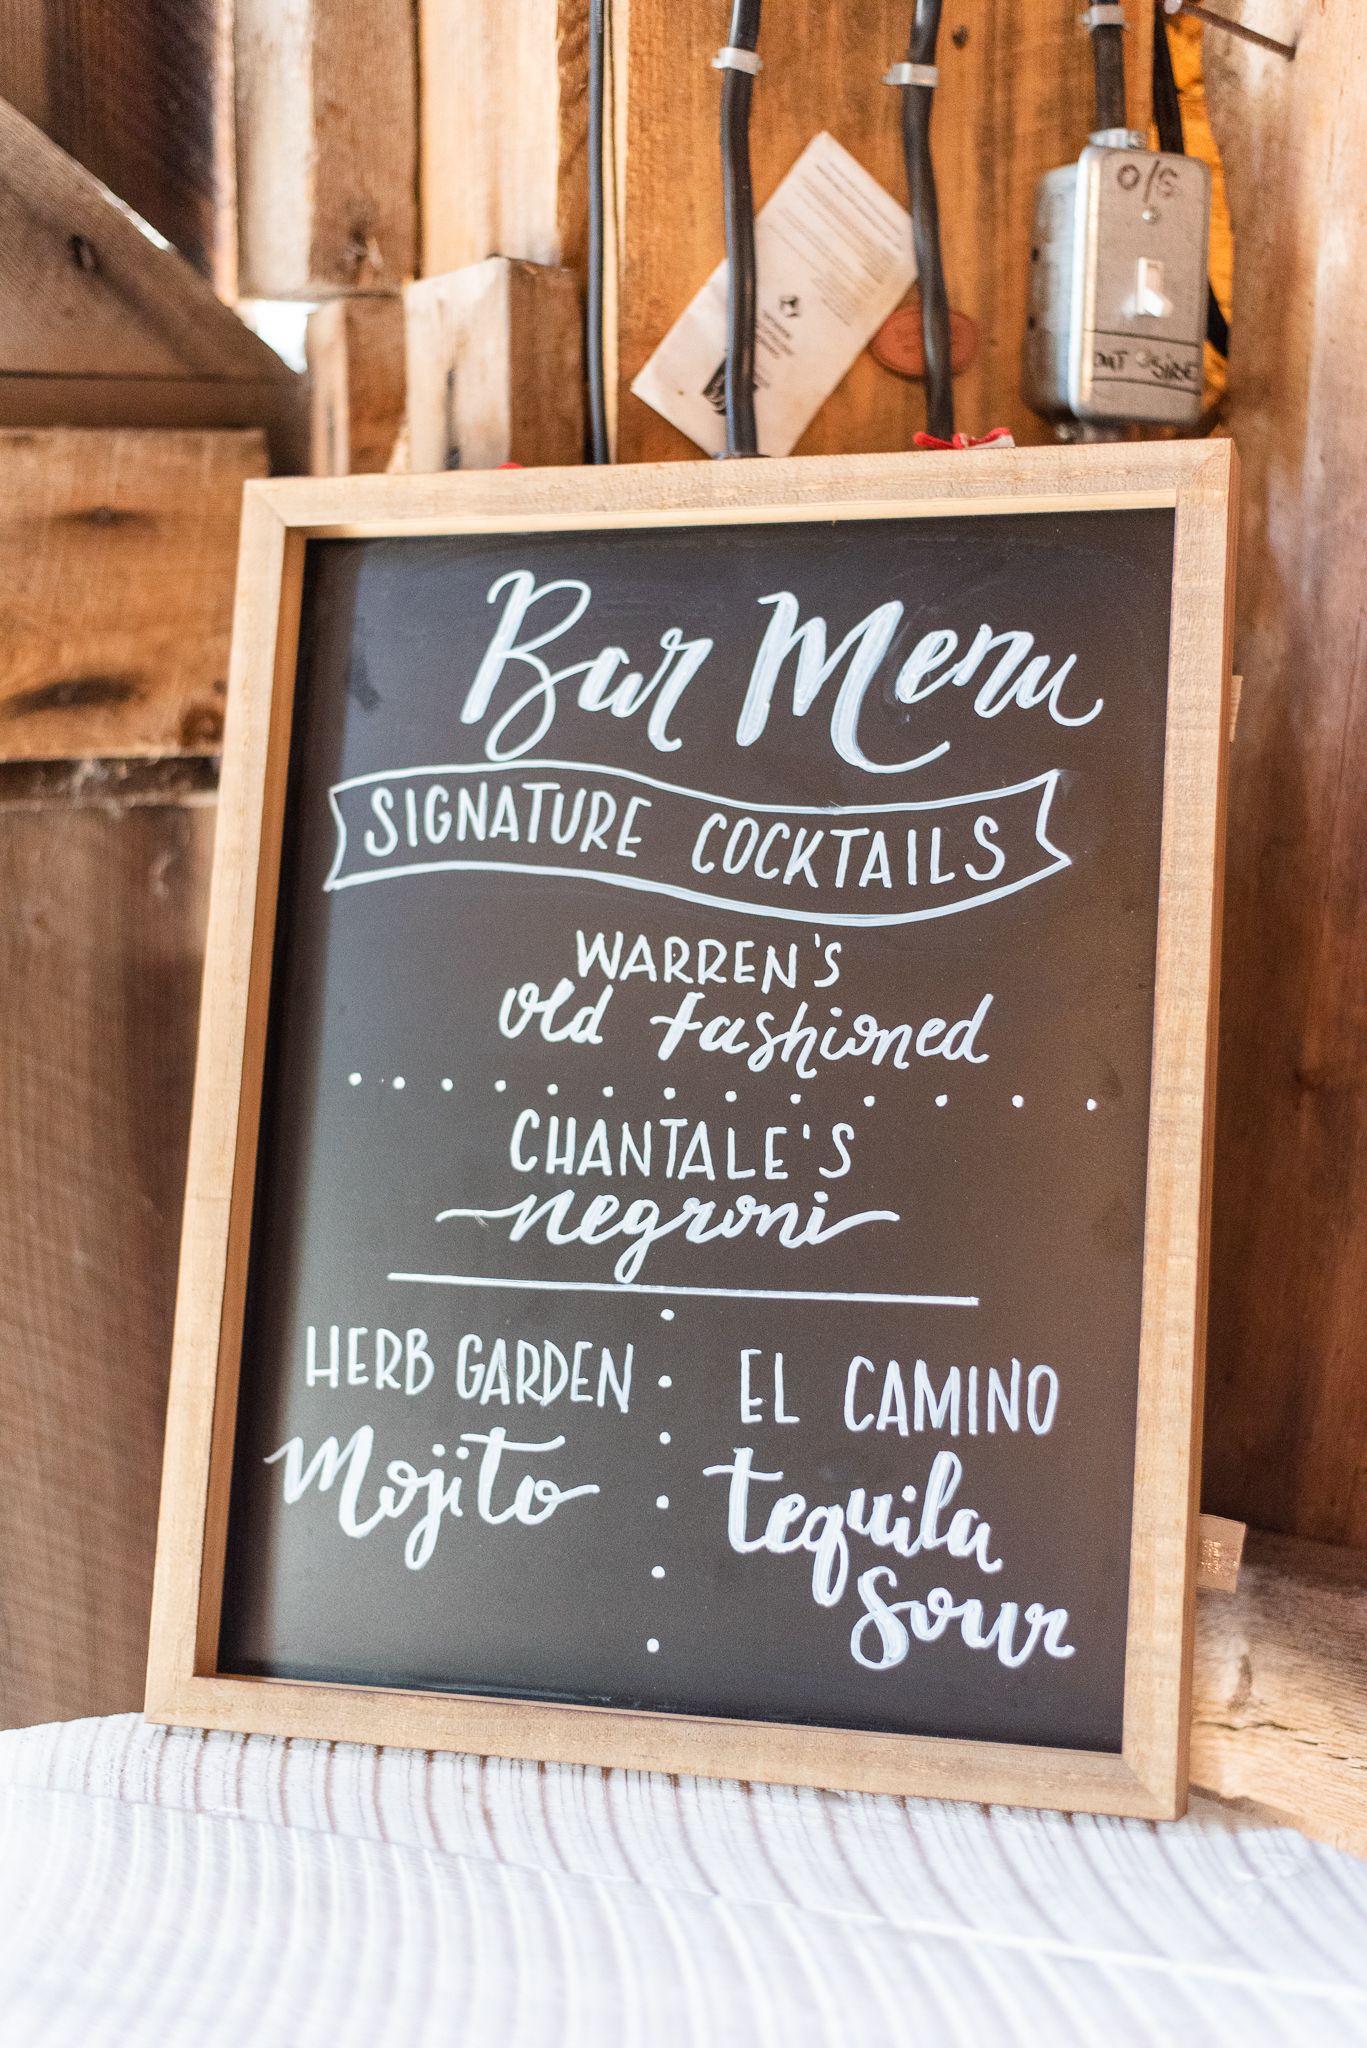 O/S
OUT SIDE
Bar Menu
SIGNATURE COCKTAILS
WARREN'S
Old Fashioned
CHANTALE'S
negroni
HERB GARDEN
Mojito
EL CAMINO
tequila
Sour